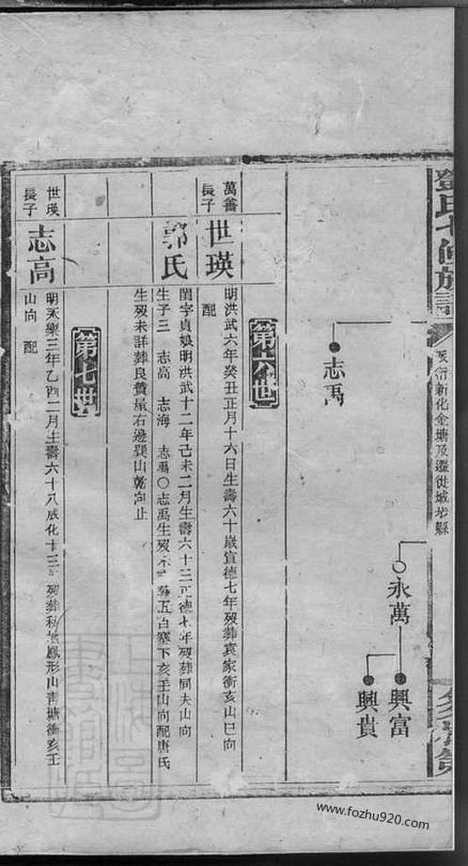 鄧氏七修族譜
新化金塘及遷徙城步縣
永萬
興富
興貴
志禹
第六世
萬
長子
世瑛
明洪武六年癸丑正月十六日生壽六十歲宣德七年歿葬袁家衝亥山巳向
配
郭氏
閨字貞娘明洪武十二年己未二月生壽六十三正德七年歿葬同夫山向
生子三 志高 志海 志禹○志禹生歿 葬五白寨下亥壬山向配唐氏
生歿未詳葬良賫屋右邊巽山乾向止
第七世
世瑛
長子
志高
明永樂三年乙酉二月生壽六十八成化十三 歿葬 鳳形山青塘衝亥壬
山向 配
www.fozhu920.com